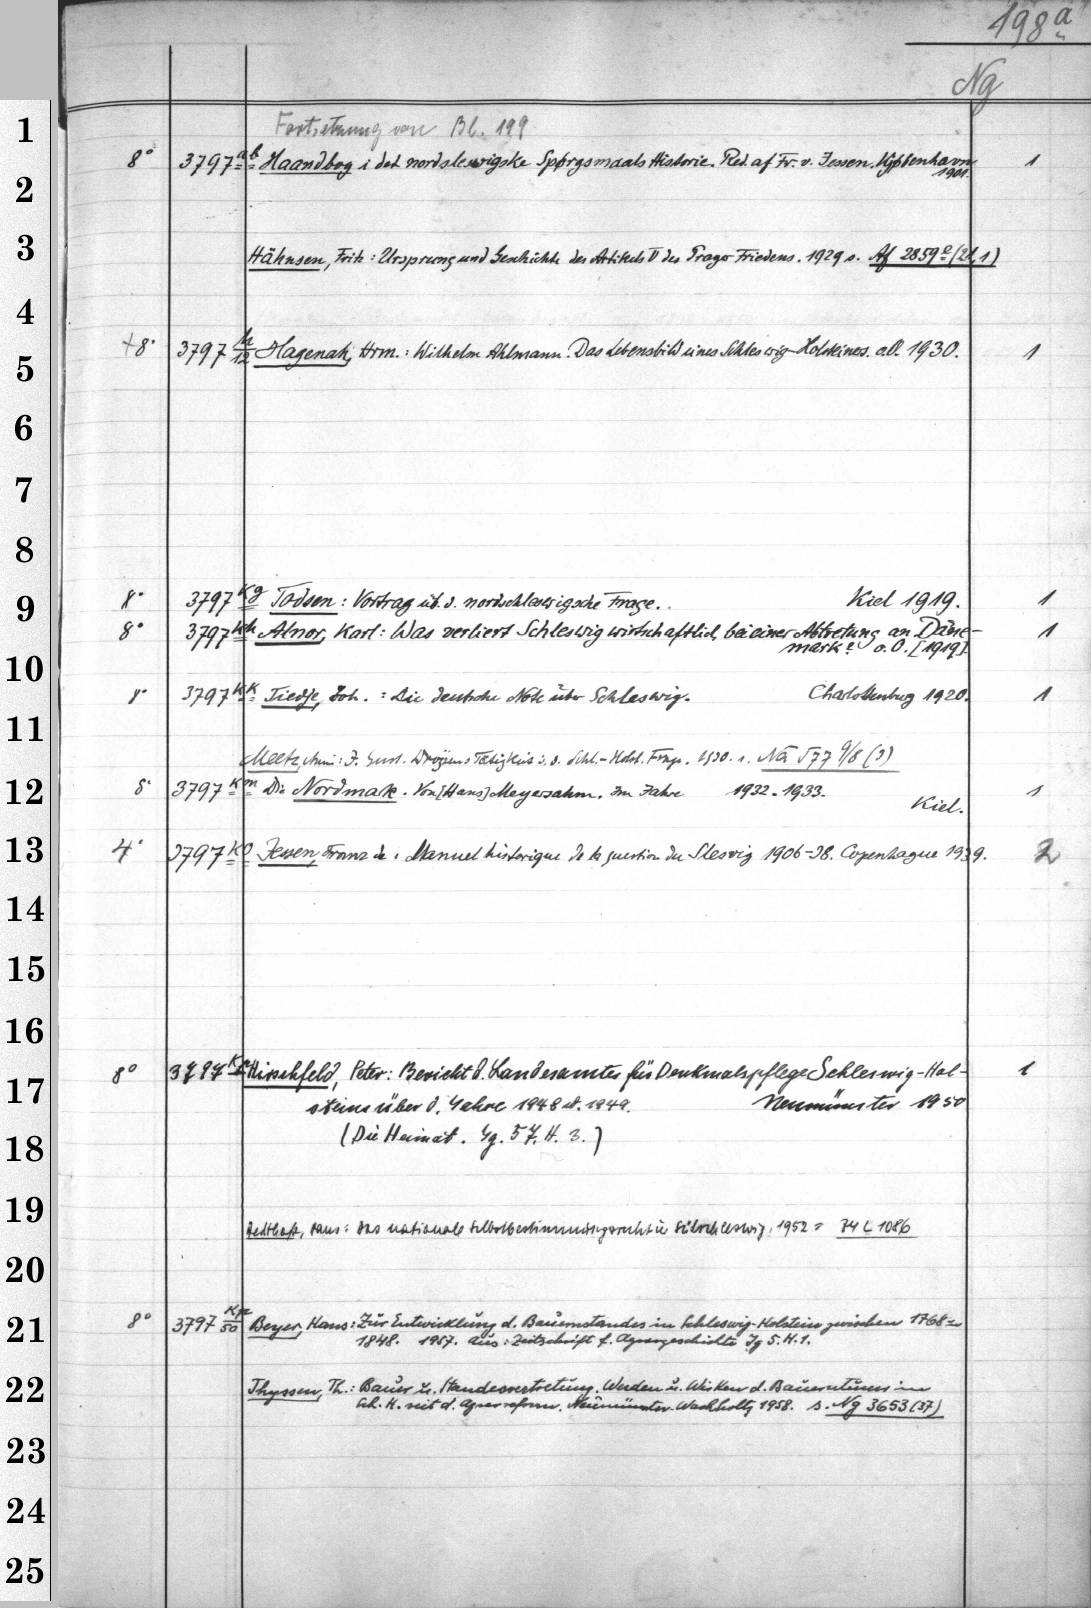 198 a
Ng
1
Fortsetzung von Bl. 199
8° 3797 ab Haandbog i det nordslesvigske Spørgsmaals Historie. Red. af Fr. v. Jessen. Kjøbenhavn 1
1901.
2
3
Hähnsen, Fritz: Ursprung und Geschichte des Artikels V des Prager Friedens. 1929 s. Af 2859 e (21,1)
4
+8° 3797 h/12 Hagenah, Hrm.: Wilhelm Ahlmann. Das Lebensbild eines Schleswig-Holsteiners. a.O. 1930. 1
5
6
7
8
8° 3797 kg Todsen: Vortrag üb. d. nordschleswigsche Frage. Kiel 1919. 1
9
8° 3797 kh Alnor, Karl: Was verliert Schleswig wirtschaftlich bei einer Abtretung an Däne- 1
mark? o.O. [1919]
10
8° 3797 kk Tiedje, Joh.: Die deutsche Note über Schleswig. Charlottenburg 1920. 1
11
Meetz, Anni: J. Gust. Droysens Tätigkeit i. d. Schl.-Holst. Frage. 1930. s. Na 577 9/8 (3)
12
8° 3797 km Die Nordmark. Von [Hans] Meyersahm. Im Jahre 1932-1933. 1
Kiel.
13
4° 3797 ko Jessen, Franz de: Manuel historique de la question du Slesvig 1906-38. Copenhague 1939. 2
14
15
16
8° 3797 Hirschfeld, Peter: Bericht d. Landesamtes für Denkmalspflege Schleswig-Hol- 1
17
steins über d. Jahre 1948 u. 1949. Neumünster 1950
(Die Heimat. Jg. 57. H. 3.)
18
19
Hans: Das nationale Selbstbestimmungsrecht in Südschleswig. 1952 = 74 L 1086
20
8° 3797 kp/50 Beyer, Hans: Zur Entwicklung d. Bauernstandes in Schleswig-Holstein zwischen 1768 u.
21
1848. 1957. Aus: Zeitschrift f. Agrargeschichte Jg 5. H. 1.
22
Thyssen, Th.: Bauer u. Standesvertretung. Werden u. Wirken d. Bauerntums in
Schl. H. seit d. Agrarreform. Neumünster: Wachholtz 1958. s. Ng 3653 (37)
23
24
25